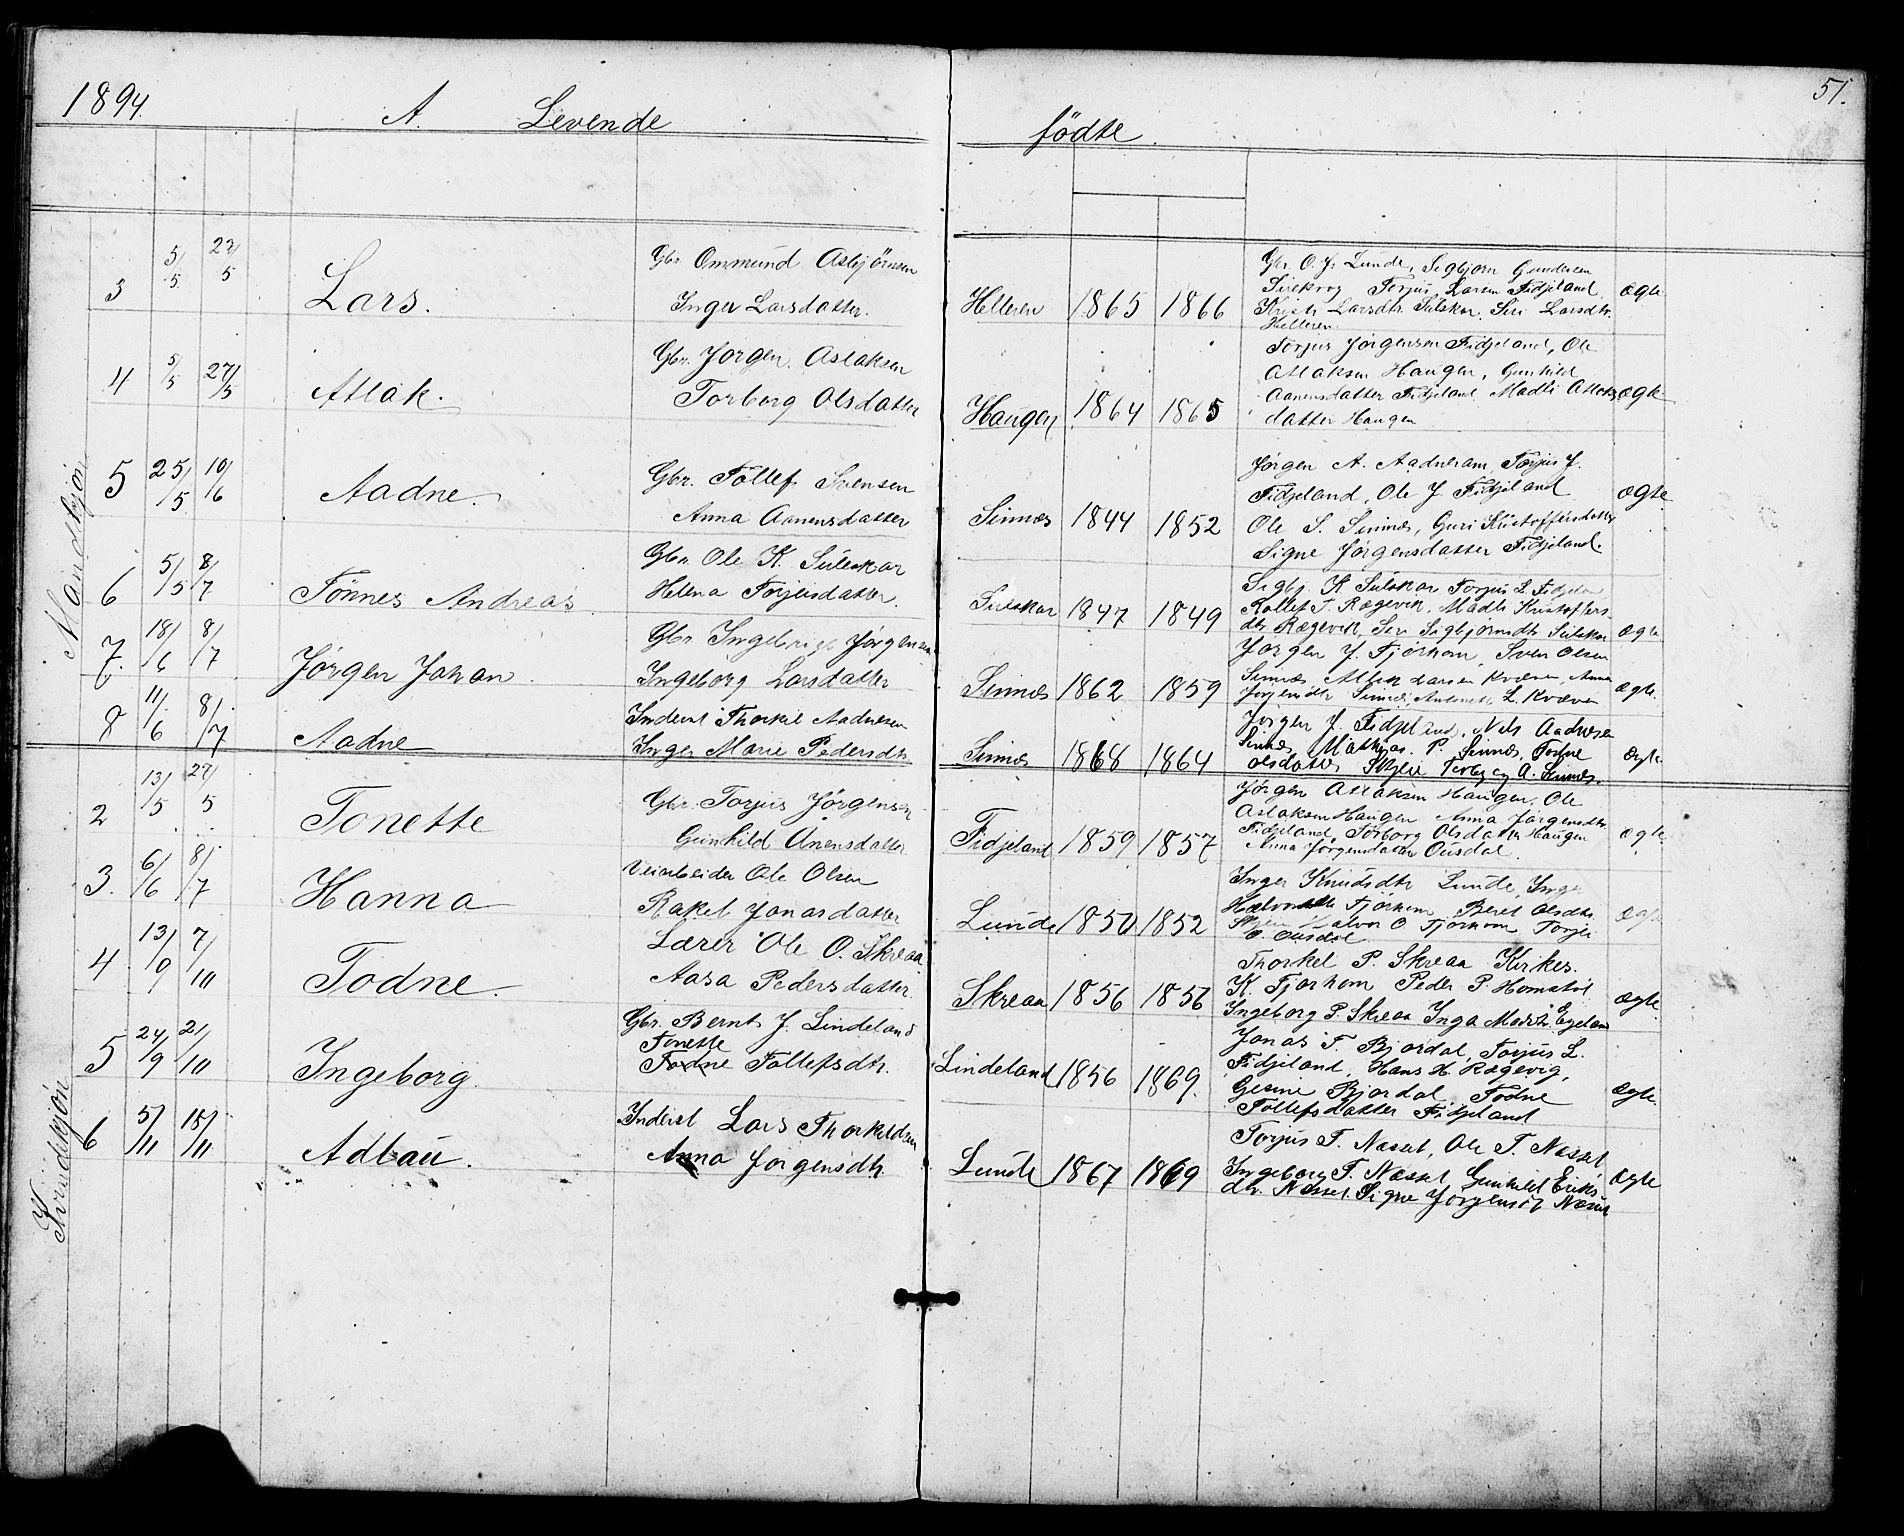 1894. A. Levende fødte. 51.
Mandskjøn
3 5/5 27/5 Lars. Gbr. Ommund Asbjörnsen
Inger Larsdatter. Helleren 1865 1866
Gbr. O. J. Lunde, Sigbjørn Gundersen
Sirekrog Torjus Larsen Fidjeland
Larsdtr. Sulskar, Siri Larsdtr.
Helleren. ægte
4 5/5 27/5 Atlak. Gbr. Jørgen Aslaksen
Torborg Olsdatter Haugen 1864 1865
Torjus Jørgensen Fidjeland, Ole
Atlaksen Haugen, Gunhild
Aanensdatter Fidjeland, Madli Atlaks
datter Haugen ægte
5 25/5 10/6 Aadne. Gbr. Tollef Svensen
Anna Aanensdatter Sinnes 1844 1852
Jørgen A. Aadneram, Torjus J.
Fidjeland, Ole J. Fidjeland
Ole S. Sinnes, Guri Kristoffersdatter
Signe Jørgensdatter Fidjeland. ægte
6 5/5 8/7 Tönnes Andreas. Gbr. Ole K. Sulskar
Helena Torjusdatter. Sulskar 1847 1849
Sigbj. K Sulskar Torjus L. Fidjeland
Rollef T. Rægevik, Madli Kristoffers
dtr. Rægevik, Siri Sigbjørnsdtr Sulskar ægte
7. 18/6 8/7 Jørgen Johan. Gbr. Ingebrigt Jørgensen
Ingeborg Larsdatter Sinnes 1862 1859
Jørgen J. Tjørhom, Sven Olsen
Sinnes, Atlak Larsen Kvæven, Anna
Jørgensdtr Sinnes, L. Kvæven ægte.
8 11/6 8/7 Aadne Inderst Thorkil Aadnesen
Inger Marie Pedersdtr Sinnes 1868 1864
Jørgen J. Fidjeland, Nils Aadnesen
Sinnes, Mathias P. Sinnes, Todne
Olsdatter A. Sinnes. ægte.
Kvindekjøn
2 13/5 27/5 Tonette Gbr. Torjus Jørgensen
Gunhild Anensdatter Fidjeland 1859 1857
Jørgen Atlaksen Haugen, Ole
Aslaksen Haugen Anna Jørgensdtr.
Fidjeland, Torborg Olsdatter Haugen
Anna Jørgensdatter Ousdal. ægte.
3. 6/6 8/7 Hanna Veiarbeider Ole Olsen
Rakel Jonasdatter Lunde 1850 1852
Inger Knudsdtr Lunde, Inger
Tjørhom, Beret Olsdtr.
Halvor O Tjørhom, Torjus
O. Ousdal ægte
4 13/9 7/10 Todne. Lærer Ole O. Skreaa
Aasa Pedersdatter. Skreaa 1856 1856
Thorkel P. Skreaa Kirkes.
K. Tjørhom Peder P. Homstøl
Ingeborg P. Skreaa Inga Egeland ægte.
5 24/9 21/10 Ingeborg. Gbr. Bernt J. Lindeland
Tonette
Todne Tollefsdtr. Lindeland 1856 1869.
Jonas T. Bjordal, Torjus L.
Fidjeland, Hans H. Rægevig,
Gesine Bjordal, Todne
Tollefsdatter Fidjeland ægte.
6 5/11 18/11 Adlau. Inderst Lars Thorkeldsen
Anna Jørgensdtr. Lunde 1867 1869
Torjus T. Næsset, Ole T. Næsset
Ingeborg T. Næsset Gunhild Eriks
dtr. Næsset. Signe Jørgensdt Næsset ægte